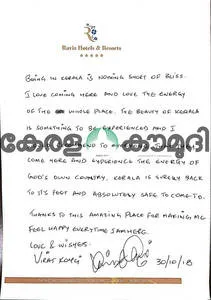 Raviz Hotels & Resorts
BEING IN KERALA IS NOTHING SHORT OF BLISS.
I LOVE COMING HERE AND LOVE THE ENERGY
OF THE WHOLE PLACE. THE BEAUTY OF KERALA
IS SOMETHING TO BE EXPERIENCED AND I
കേരളകൗമുദി
COME HERE AND EXPERIENCE THE ENERGY OF
GOD'S OWN COUNTRY. KERALA IS SURELY BACK
TO IT'S FEET AND ABSOLUTELY SAFE TO COME TO.
THANKS TO THIS AMAZING PLACE FOR MAKING ME
FEEL HAPPY EVERYTIME I AM HERE.
LOVE & WISHES.
VIRAT KOHLI
30/10/18